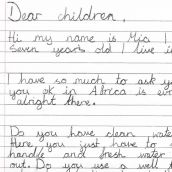 Dear children,
Hi my name is Mia I
Seven years old I live i
I have so much to ask y
you ok in Africa is ev
alright there.
Do you have clean water
Here you just have to
handle and fresh water
out. Do you use a well